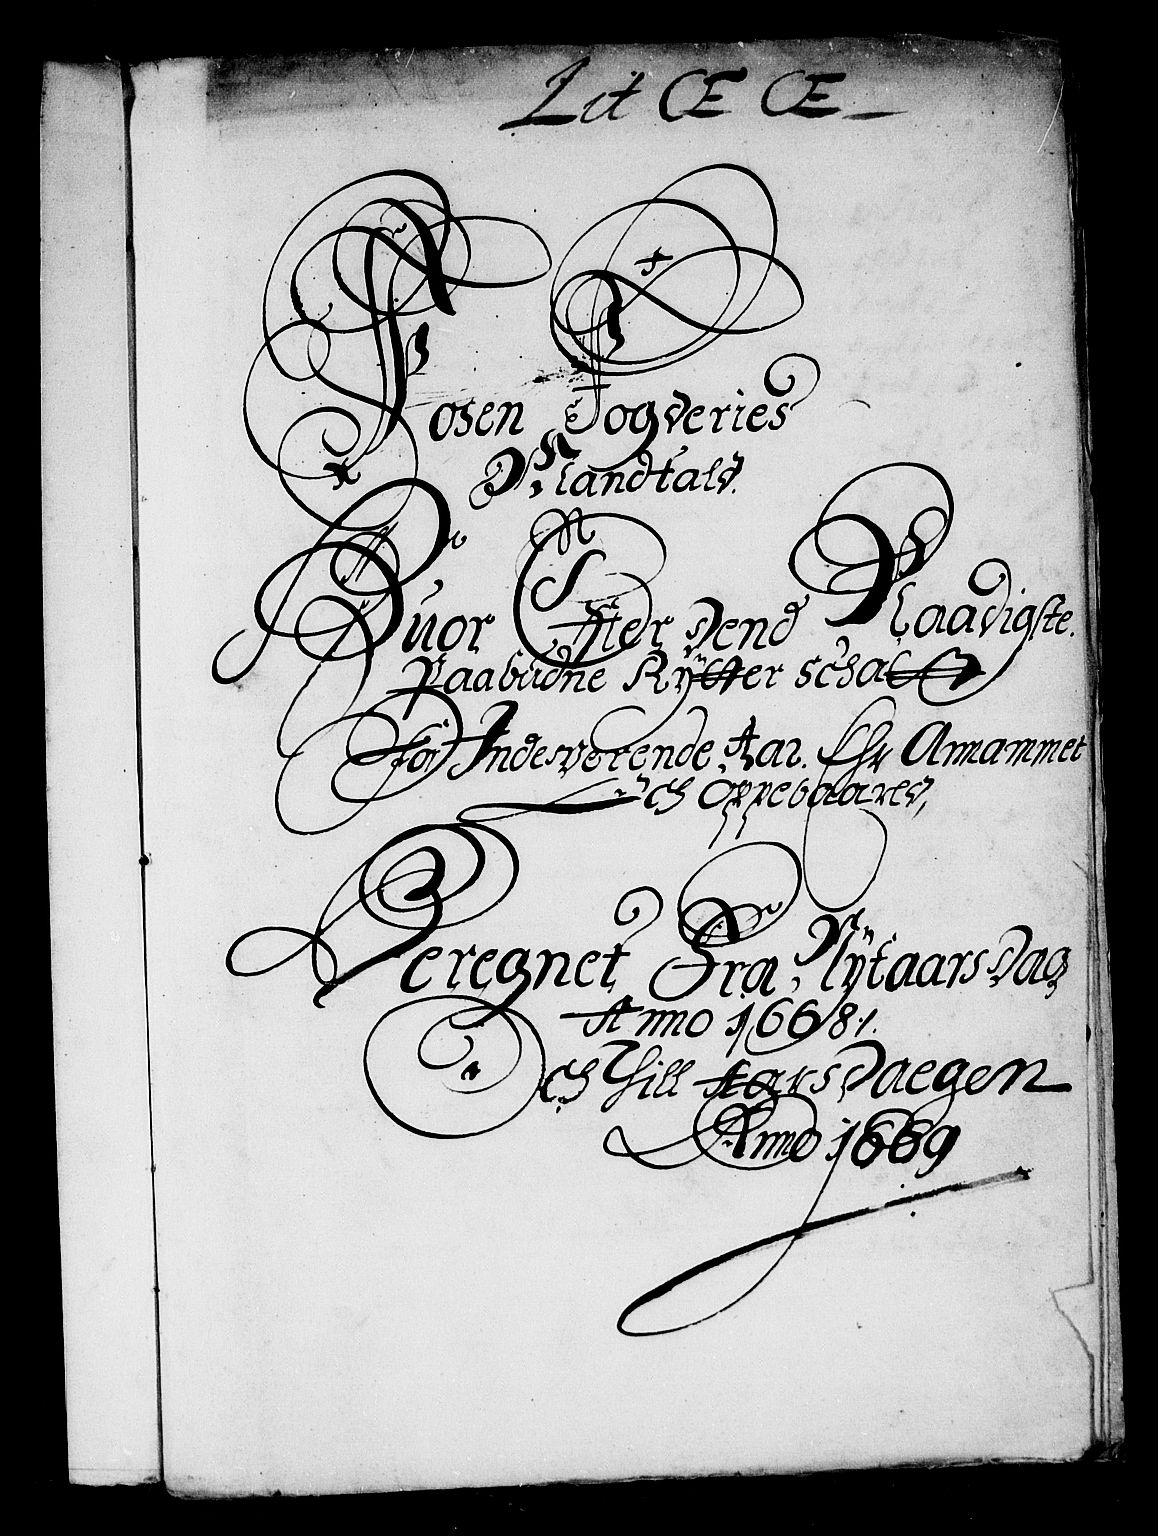 Lit Œ Œ
Fosen Fogderies
Mandtall.
Huor Efter dend Naadigste.
Paabudne Rytter schatt
for Indeverende Aar. Ehr Annammet
och Oppebaaret,
Beregnet Fra Nÿtaarsdag
Anno 1668.
Och Thill Aarsdaegen
Anno 1669